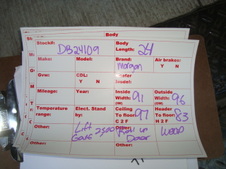 Body
Stock#: DB24109 Body Length: 24
Make: Model: Brand Morgan Air brakes: Y N
Gvw: CDL: Y N
Mileage: Year: Inside Width: 91 Outside Width: 96
Temperature range: Elect. Stand by: Ceiling To floor: 97 Door To floor: 83
Other: Lift Gate 2500 Roll up Door Other: WOOD